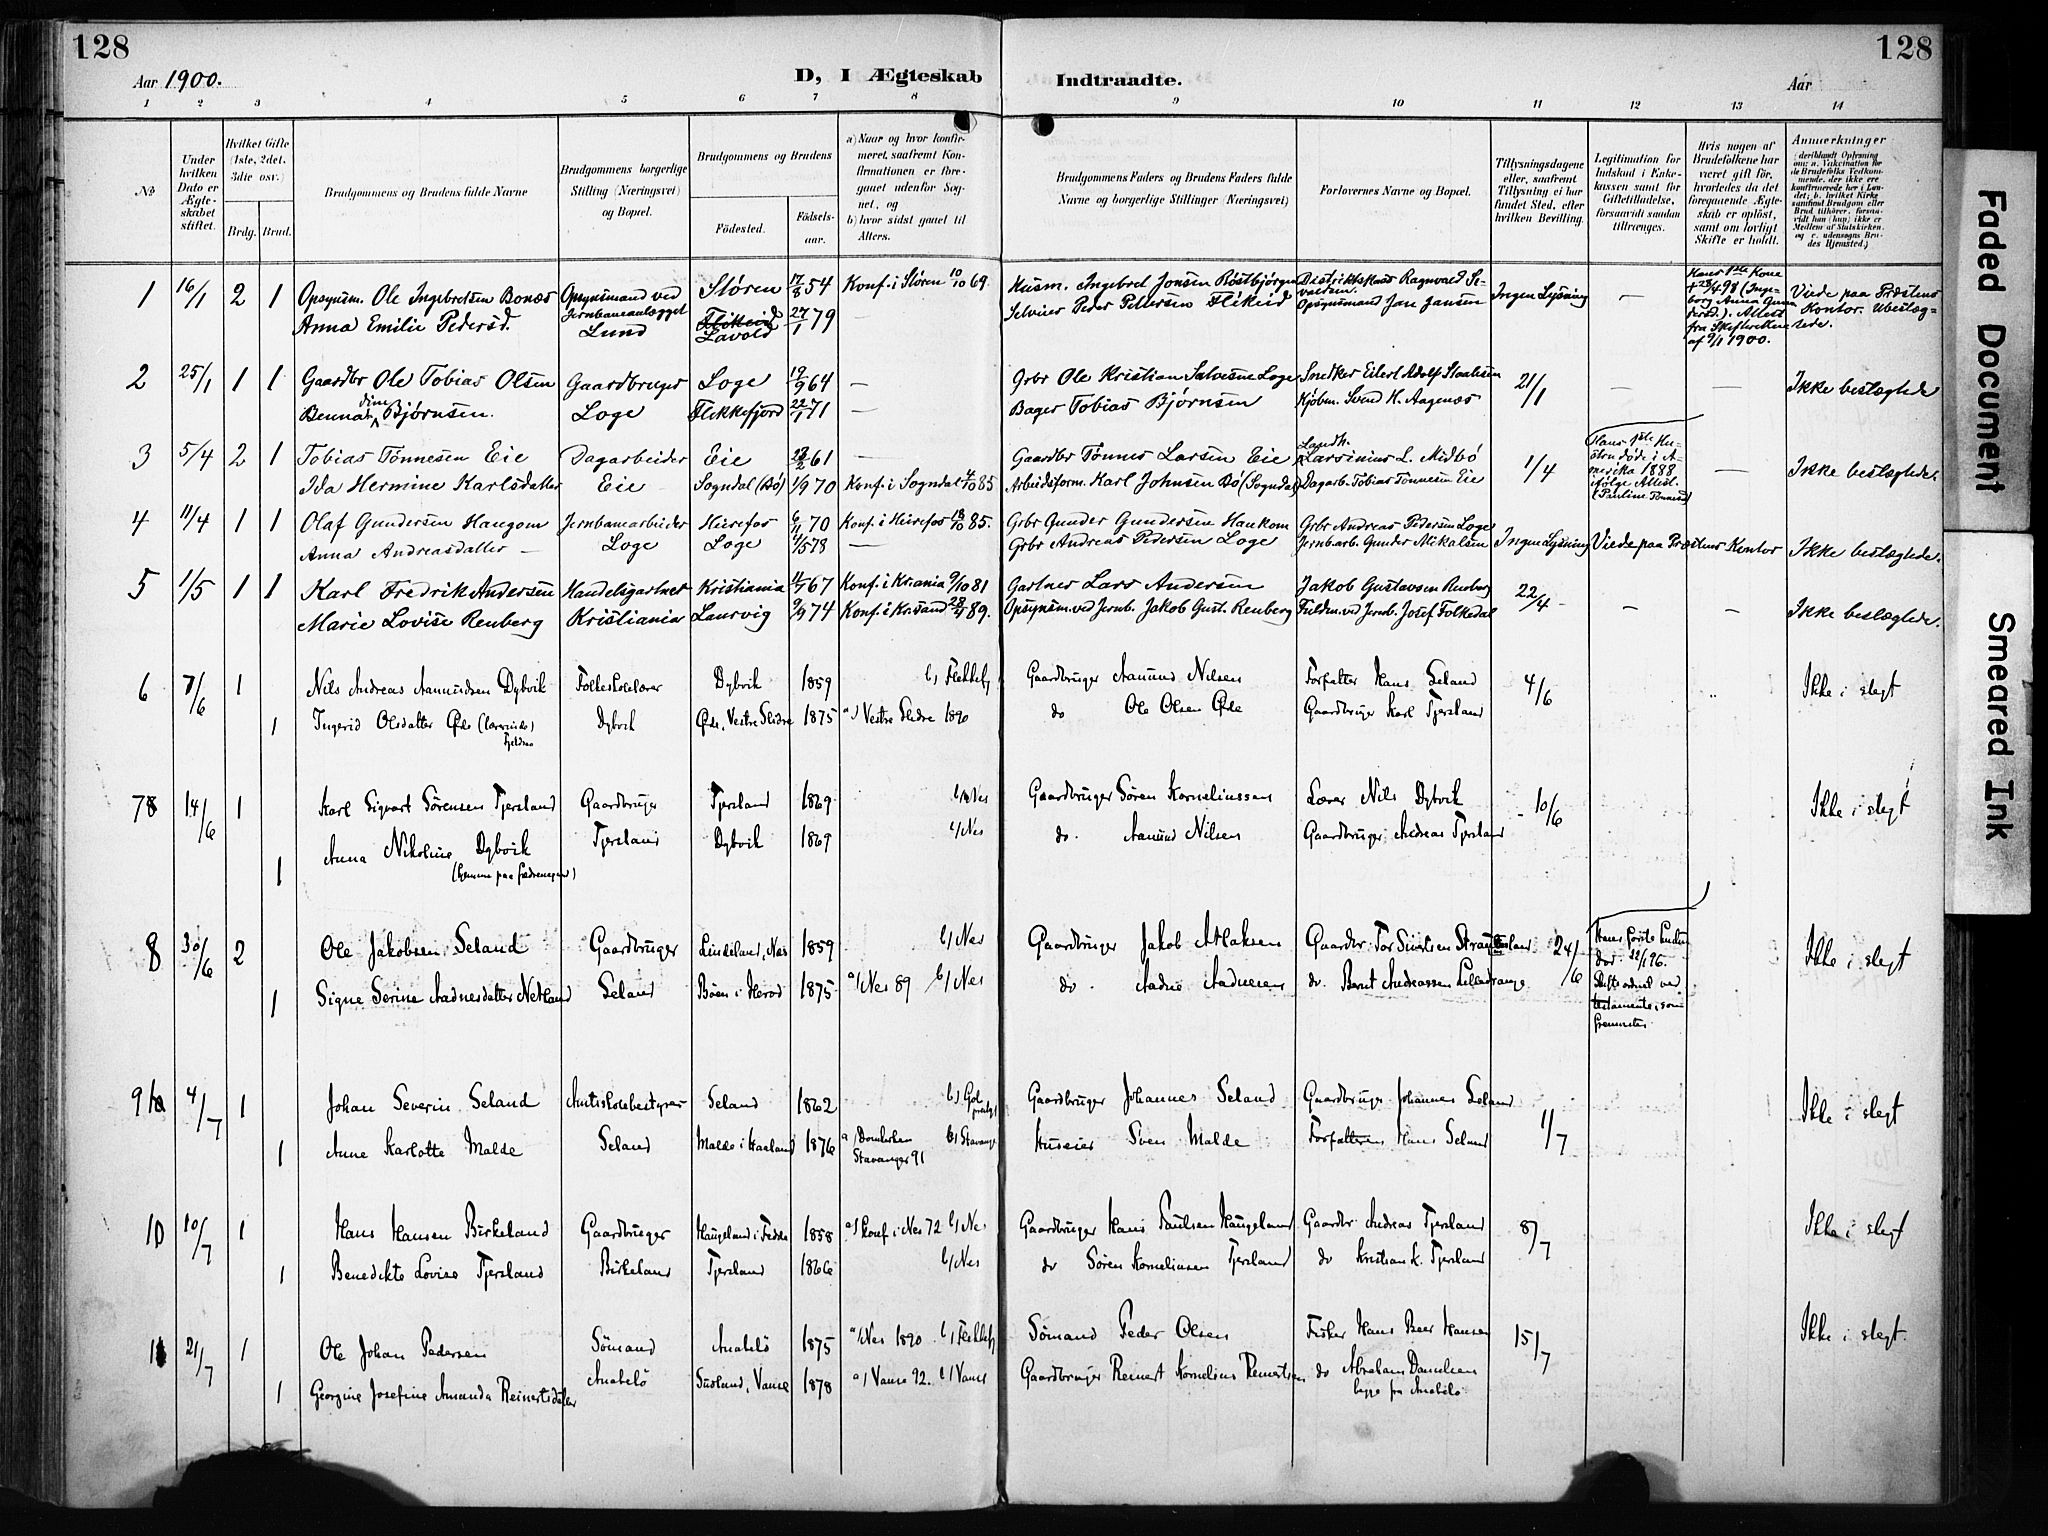 128
128
Aar 1900.
D, I Ægteskab Indtraadte.
Aar
1 2 3 4 5 6 7 8 9 10 11 12 13 14
No
Under hvilken Dato er Ægteskabet stiftet.
Hvilket Gifte (1ste, 2det, 3die osv.)
Brdg. Brud.
Brudgommens og Brudens fulde Navne
Brudgommens borgerlige Stilling (Næringsvei) og Bopæl.
Brudgommens og Brudens
Födested. Födselsaar.
a) Naar og hvor konfirmeret, saafremt Konfirmationen er foregaaet udenfor Sognet, og
b) hvor sidst gaaet til Alters.
Brudgommens Faders og Brudens Faders fulde Navne og borgerlige Stillinger (Næringsvei)
Forlovernes Navne og Bopæl.
Tillysningsdagene eller, saafremt Tillysning ei har fundet Sted, efter hvilken Bevilling.
Legitimation for Indskud i Enkekassen samt for Giftetilladelse, forsaavidt saadan tiltrænges.
Hvis nogen af Brudefolkene har været gift før, hvorledes da det foregaaende Ægteskab er opløst, samt om lovligt Skifte er holdt.
Anmærkninger
1 16/1 2 1 Opsynsm. Ole Ingebretsen Bonæs Opsynsmand ved Jernbaneanlægget Støren 17/8 54 Konf. i Støren 10/10 69. Husm. Ingebret Jonsen Røstbjørgen Distriktskas Ragnvald Sevaldsen. Ingen Lysning — Hans 1ste Kone + 23/4 98 (Ingeborg Anna Gundersd.). Attest fra Skifteretten af 9/1 1900. Viede paa Præstens Kontor. Ubeslægtede.
Anna Emilie Pedersd. Lund Flikeid Lavold 27/1 79 — Selveier Peder Pettersen Flikeid Opsynsmand Jan Jansen
2 25/1 1 1 Gaardbr Ole Tobias Olsen Gaardbruger Loge 19/9 64 — Grbr Ole Kristian Salvesen Loge Snedker Eilert Adolf Staalesen 21/1 — — Ikke beslægtede
Bennadine Bjørnsen. Loge Flekkefjord 22/1 71 — Bager Tobias Bjørnsen Kjøbm. Svend H. Aagenæs
3 5/4 2 1 Tobias Tønnesen Eie Dagarbeider Eie 28/2 61 — Gaardbr Tønnes Larsen Eie Landh. Larsinius L. Midbø 1/4 Hans 1ste Hustru døde i Amerika 1888 ifølge Attest. (Pauline Tønnesd) — Ikke beslægtede.
Ida Hermine Karlsdatter Eie Sogndal (Bø) 1/9 70 Konf. i Sogndal 4/10 85 Arbeidsform. Karl Johnsen Bø (Sogndal) Dagarb. Tobias Tønnesen Eie
4 11/4 1 1 Olaf Gundersen Haugom Jernbanearbeider Hirefos 6/11 70 Konf. i Hirefos 18/10 85. Grbr Gunder Gundersen Haukom Grbr Andreas Pedersen Loge Ingen Lysning Viede paa Præstens Kontor Ikke beslægtede.
Anna Andreasdatter — Loge Loge 4/5 78 — Grbr Andreas Pedersen Loge Jernbarb. Gunder Mikalsen
5 1/5 1 1 Karl Fredrik Andersen Handelsgartner Kristiania 4/7 67 Konf. i Kr.ania 9/10 81 Gartner Lars Andersen Jakob Gustavsen Renberg 22/4 — — Ikke beslægtede.
Marie Lovise Renberg Kristiania Laurvig 9/9 74 Konf. i Kr.sand 28/4 89. Opsynsm. ved Jernb. Jakob Gust. Renberg Fuldm. ved Jernb. Josef Folkedal
6 7/6 1 Nils Andreas Aamundsen Dybvik Folkeskolelærer Dybvik 1859 b) Flekkefj Gaardbruger Aamund Nilsen Forfatter Hans Seland 4/6 Ikke i slegt
1 Ingerid Olsdatter Øde (lærerinde) Dybvik Øde, Vestre Slidre 1875 a) Vestre Slidre 1890 do Ole Olsen Øde Gaardbruger Karl Tjersland
7 14/6 1 Karl Sigvart Sørensen Tjersland Gaardbruger Tjersland 1869 b) Nes Gaardbruger Søren Korneliussen Lærer Nils Dybvik 10/6 Ikke i slegt
1 Anna Nikoline Dybvik Tjersland Dybvik 1869 b) Nes do. Aamund Nilsen Gaardbruger Andreas Tjersland
8 30/6 2 Ole Jakobsen Seland Gaardbruger Lindeland, Nes 1859 b) Nes Gaardbruger Jakob Atlaksen Gaardbr Tor Sivertsen 24/6 Hans første hustru død 22/1 96. Skifte ordnet ved testamente, som fremvistes Ikke i slegt
1 Signe Serine Aadnesdatter Netland Seland Bøen i Herod 1875 a) Nes 89 b) Nes do. Aadne Aadnesen do. Bernt Andreassen
9 4/7 1 Johan Severin Seland Amtsskolebestyrer Seland 1862 b) Gol Gaardbruger Johannes Seland Gaardbruger Johannes Seland 1/7 Ikke i slegt
1 Anne Karlotte Malde Seland Malde i Haaland 1876 a) Domkirken Stavanger 91 b) Stavanger Huseier Sven Malde Forfatteren Hans Seland
10 10/7 1 Hans Hansen Birkeland Gaardbruger Haugeland i Fedde 1858 a) Konf. i Nes 72 b) Nes Gaardbruger Hans Paulsen Haugeland Gaardbr. Andreas Tjersland 8/7 Ikke i slegt
1 Benedikte Lovise Tjersland Birkeland Tjersland 1866 b) Nes do Søren Korneliusen Tjersland do Kristian K. Tjersland
11 21/7 1 Ole Johan Pedersen Sømand Anabelø 1875 a) Nes 1890 b) Flekkefj Sømand Peder Olsen Fisker Hans Beer Hansen 15/7 Ikke i slegt.
1 Georgine Josefine Amanda Reinertsdatter Anabelø Vanse 1878 a) Vanse 92. b) Vanse Gaardbruger Reinert Kornelius Reinertsen do Abraham Danielsen begge fra Anabelø
Faded Document
Smeared Ink